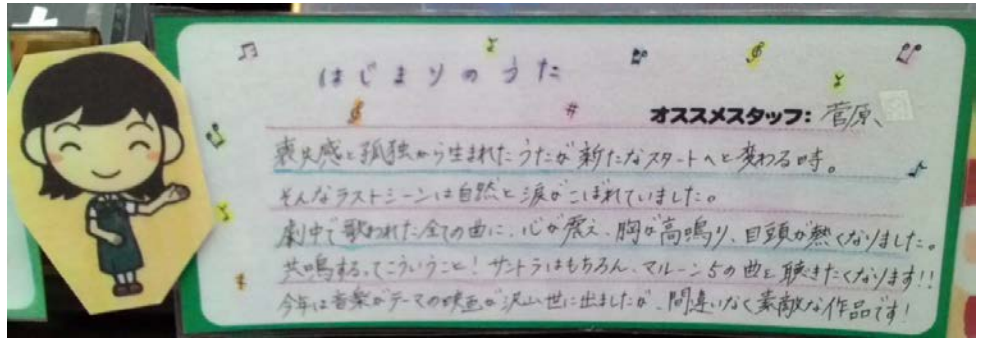 はじまりのうた
オススメスタッフ: 菅原、
喪失感と孤独から生まれたうたが新たなスタートへと変わる時。
そんなラストシーンは自然と涙がこぼれていました。
劇中で歌われた全ての曲に、心が震え、胸が高鳴り、目頭が熱くなりました。
共鳴する、てこういうこと!サントラはもちろん、マルーン5の曲も聴きたくなります!!
今年は音楽がテーマの映画が沢山世に出ましたが、間違いなく素敵な作品です!